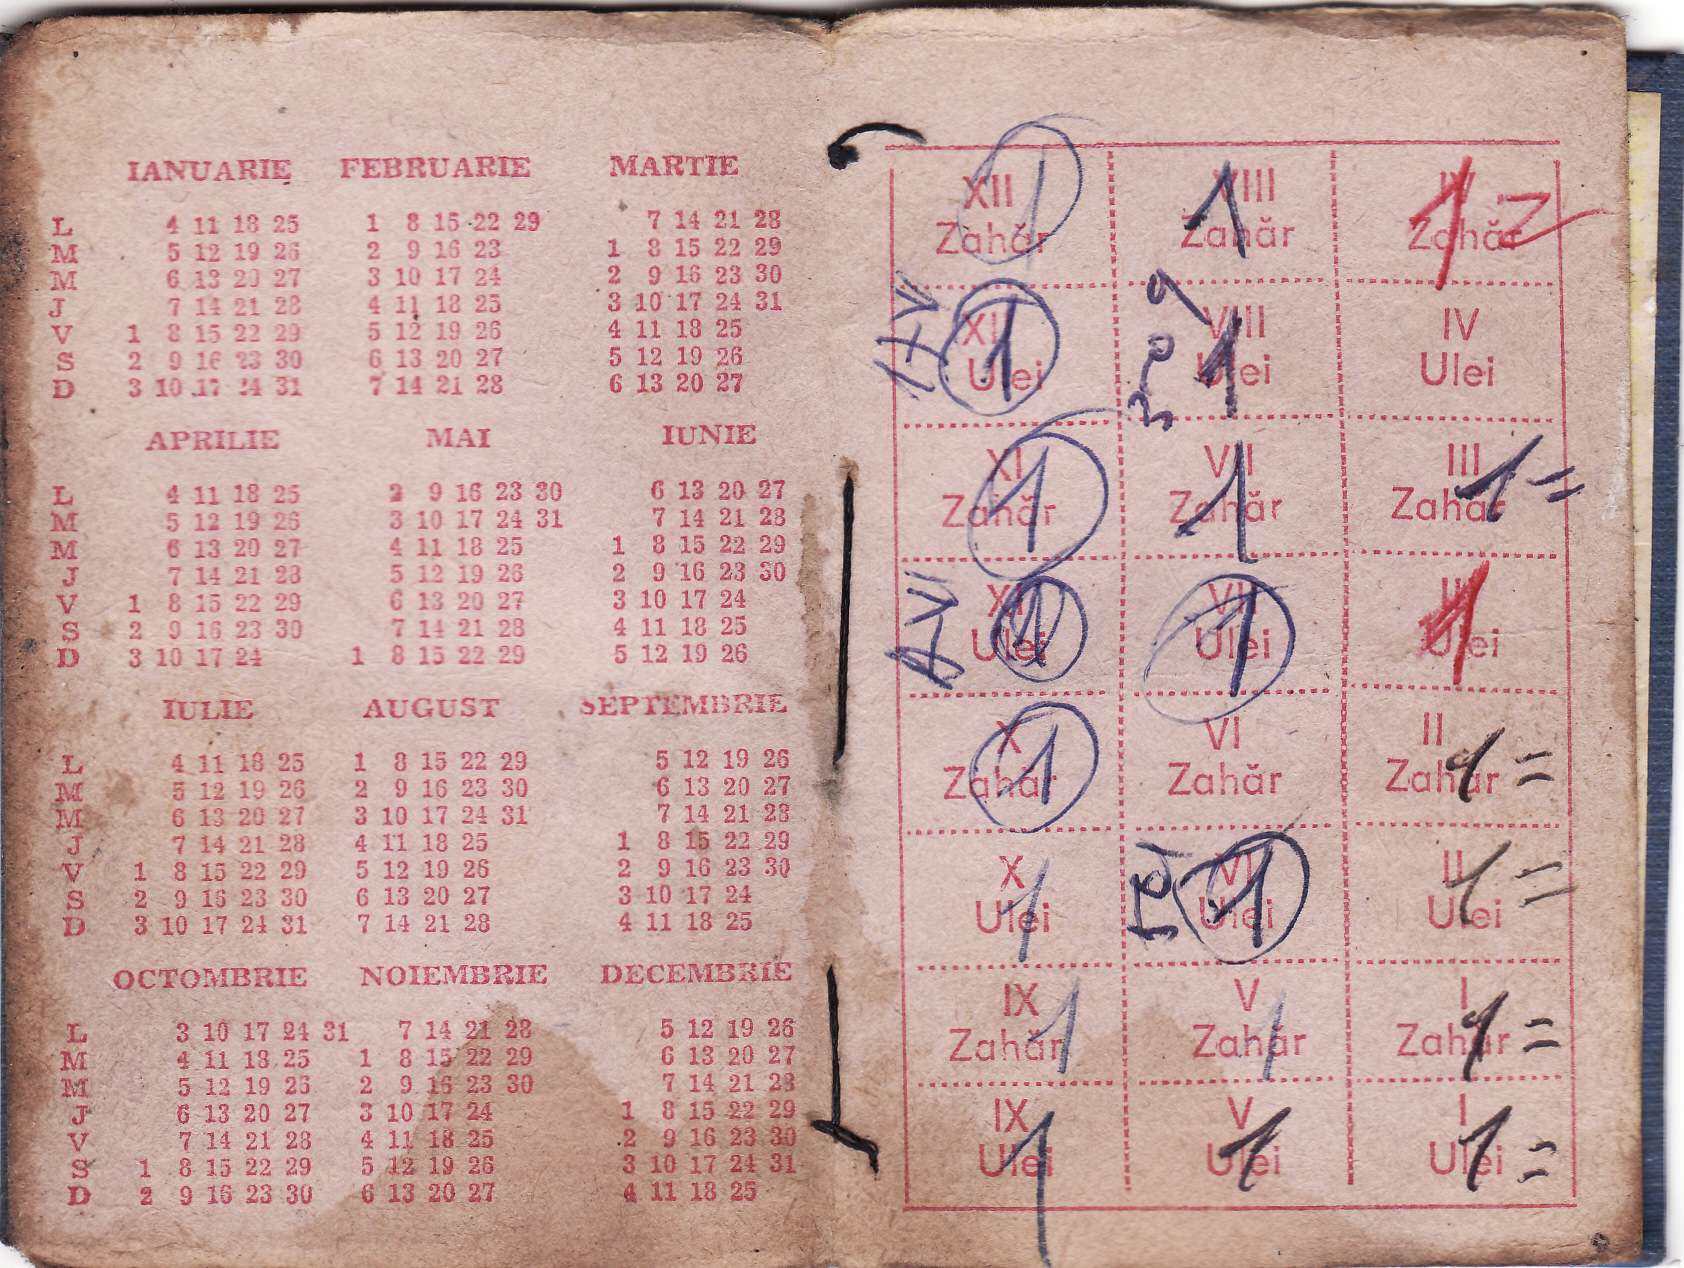 IANUARIE FEBRUARIE MARTIE
L 4 11 18 25 1 8 15 22 29 7 14 21 28
M 5 12 19 26 2 9 16 23 1 8 15 22 29
M 6 13 20 27 3 10 17 24 2 9 16 23 30
J 7 14 21 28 4 11 18 25 3 10 17 24 31
V 1 8 15 22 29 5 12 19 26 4 11 18 25
S 2 9 16 23 30 6 13 20 27 5 12 19 26
D 3 10 17 24 31 7 14 21 28 6 13 20 27
APRILIE MAI IUNIE
L 4 11 18 25 2 9 16 23 30 6 13 20 27
M 5 12 19 26 3 10 17 24 31 7 14 21 28
M 6 13 20 27 4 11 18 25 1 8 15 22 29
J 7 14 21 28 5 12 19 26 2 9 16 23 30
V 1 8 15 22 29 6 13 20 27 3 10 17 24
S 2 9 16 23 30 7 14 21 28 4 11 18 25
D 3 10 17 24 1 8 15 22 29 5 12 19 26
IULIE AUGUST SEPTEMBRIE
L 4 11 18 25 1 8 15 22 29 5 12 19 26
M 5 12 19 26 2 9 16 23 30 6 13 20 27
M 6 13 20 27 3 10 17 24 31 7 14 21 28
J 7 14 21 28 4 11 18 25 1 8 15 22 29
V 1 8 15 22 29 5 12 19 26 2 9 16 23 30
S 2 9 16 23 30 6 13 20 27 3 10 17 24
D 3 10 17 24 31 7 14 21 28 4 11 18 25
OCTOMBRIE NOIEMBRIE DECEMBRIE
L 3 10 17 24 31 7 14 21 28 5 12 19 26
M 4 11 18 25 1 8 15 22 29 6 13 20 27
M 5 12 19 26 2 9 16 23 30 7 14 21 28
J 6 13 20 27 3 10 17 24 1 8 15 22 29
V 7 14 21 28 4 11 18 25 2 9 16 23 30
S 1 8 15 22 29 5 12 19 26 3 10 17 24 31
D 2 9 16 23 30 6 13 20 27 4 11 18 25
XII 1 VIII 1 IV 1
Zahăr Zahăr Zahăr
XII 1 VIII 1 IV
Ulei Ulei Ulei
XI 1 VII 1 III 1 =
Zahăr Zahăr Zahăr
XI 1 VII 1 III 1
Ulei Ulei Ulei
X 1 VI II 1 =
Zahăr Zahăr Zahăr
X 1 VI 1 II 1 =
Ulei Ulei Ulei
IX 1 V 1 I 1 =
Zahăr Zahăr Zahăr
IX 1 V 1 I 1 =
Ulei Ulei Ulei